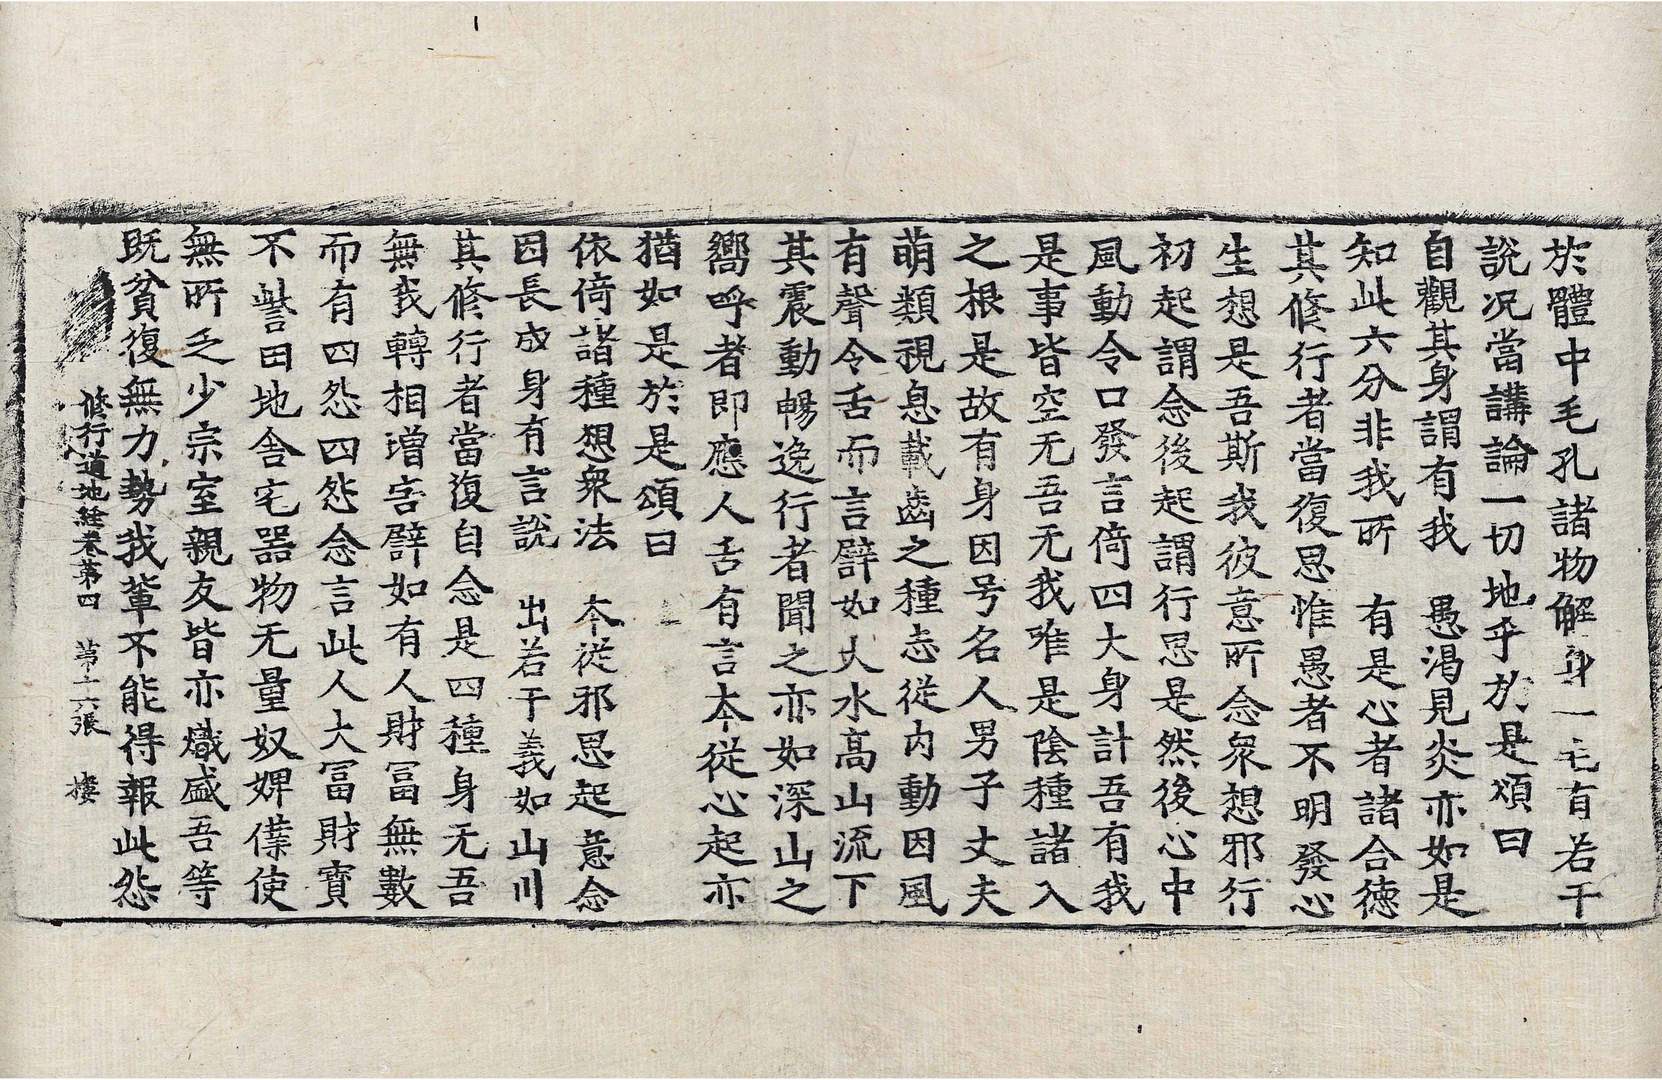 於體中毛孔諸物解身一毛有若干
說况當講論一切地乎於是頌曰
自觀其身謂有我　愚渴見炎亦如是
知此六分非我所　有是心者諸合德
其修行者當復思惟愚者不明發心
生想是吾斯我彼意所念衆想邪行
初起謂念後起謂行思是然後心中
風動令口發言倚四大身計吾有我
是事皆空无吾无我唯是陰種諸入
之根是故有身因号名人男子丈夫
萌類視息載齒之種志從内動因風
有聲令舌而言譬如大水高山流下
其震動暢逸行者聞之亦如深山之
嚮呼者即應人舌有言本從心起亦
猶如是於是頌曰
依倚諸種想衆法　本從邪思起意念
因長成身有言說　出若干義如山川
其修行者當復自念是四種身无吾
無我轉相增害譬如有人財冨無數
而有四怨四怨念言此人大冨財寳
不訾田地舍宅器物无量奴婢僕使
無所乏少宗室親友皆亦熾盛吾等
既貧復無力勢我輩不能得報此怨
修行道地經卷第四　第十六張　樓